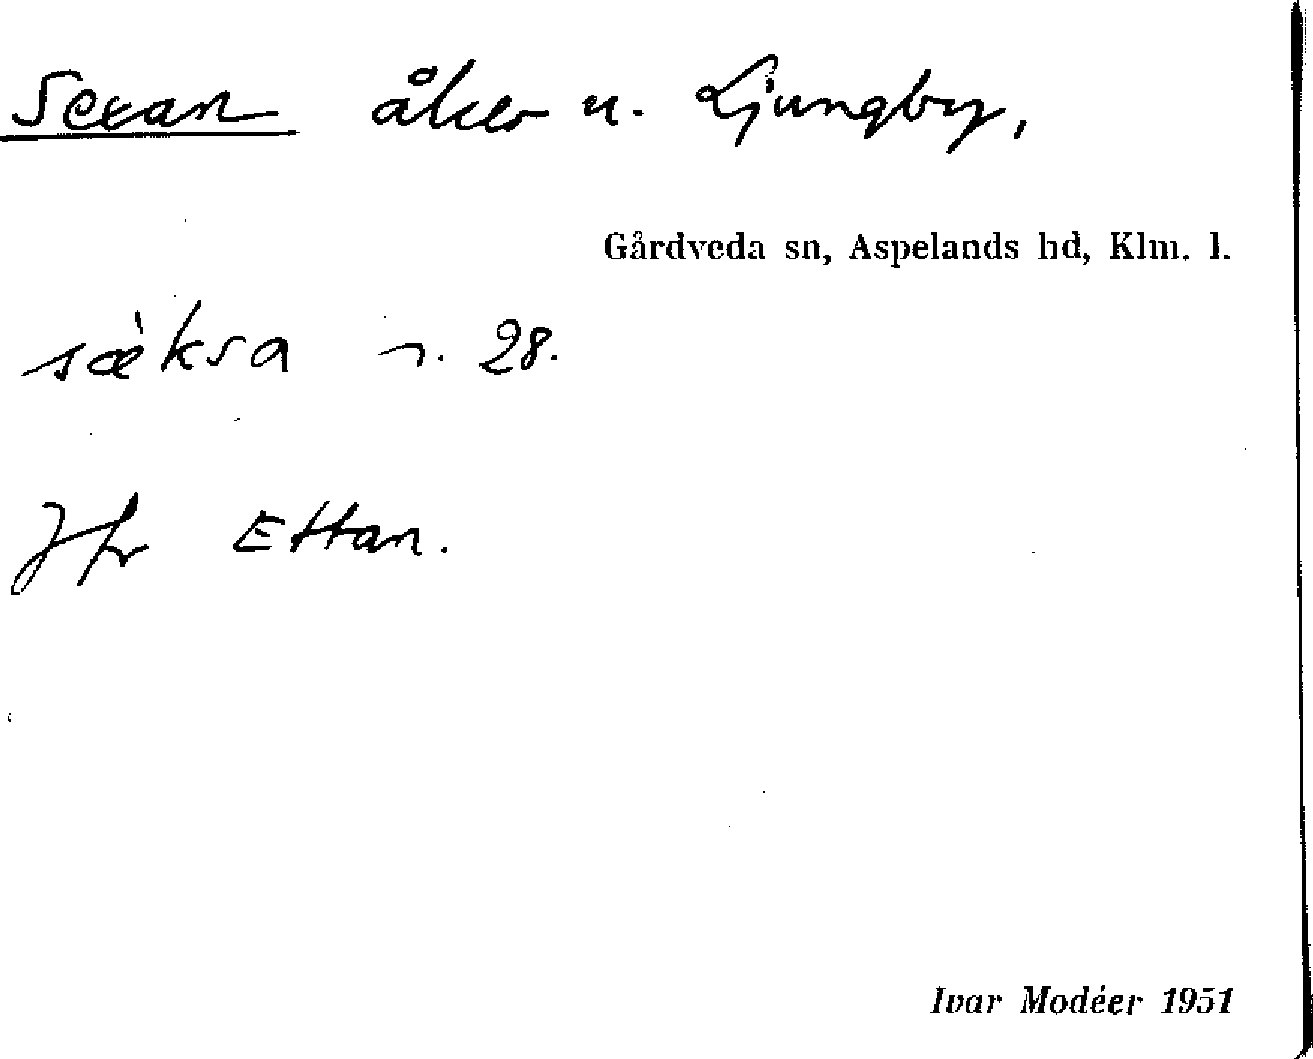 Sexan åker u. Ljungby,
Gårdveda sn, Aspelands hd, Klm. l.
sæ̀ksa n. 28.
Jfr Ettan.
Ivar Modéer 1951